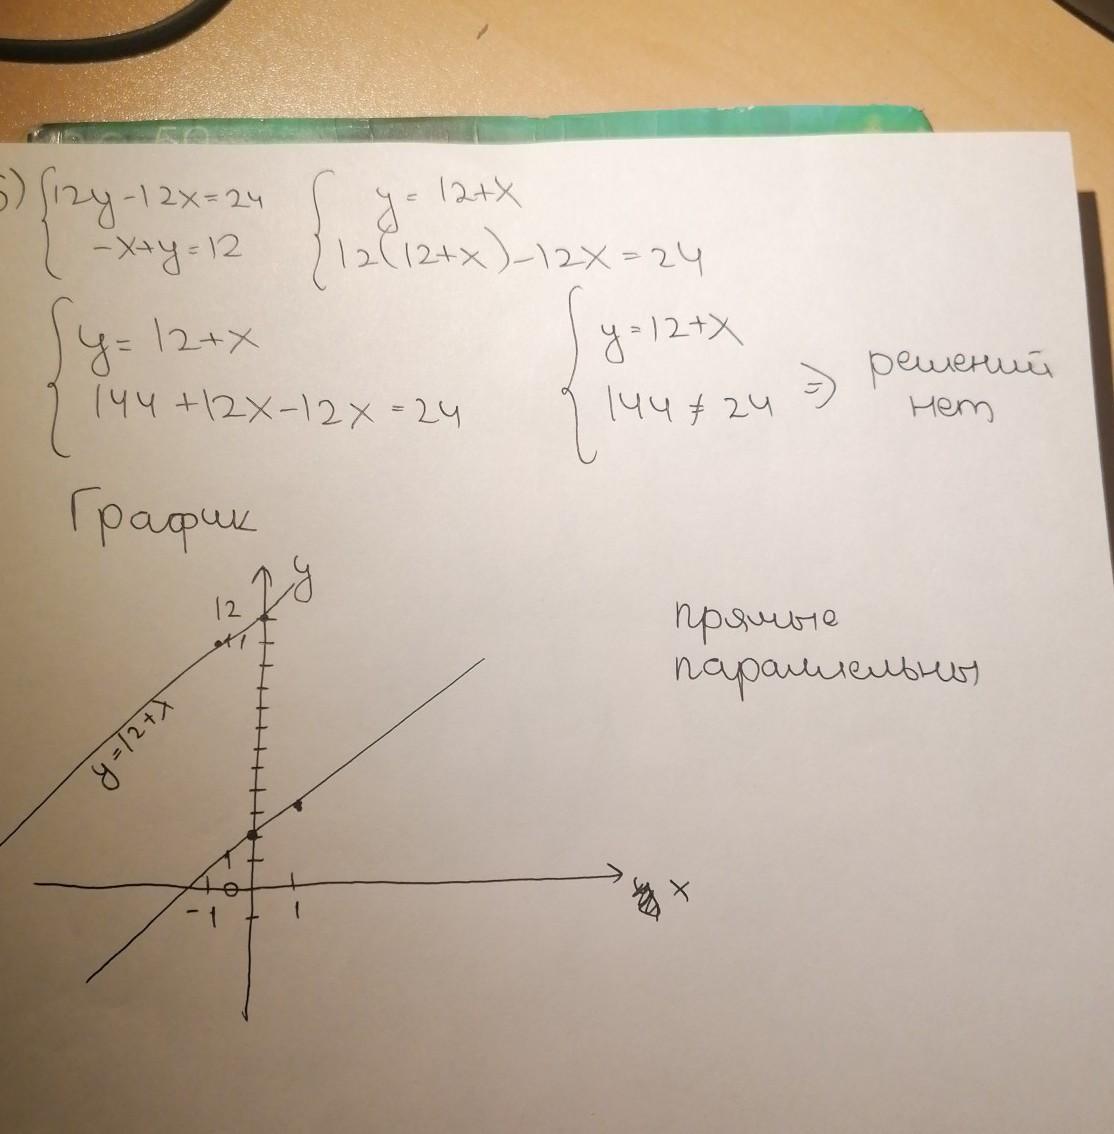 б) { 12y-12x=24
-x+y=12
{ y= 12+x
12(12+x)-12x=24
{ y= 12+x
144+12x-12x=24
{ y=12+x
144≠24 ⇒ решений
нет
График
y
12
1
y=12+x
1
0
-1
1
x
прямые
параллельны